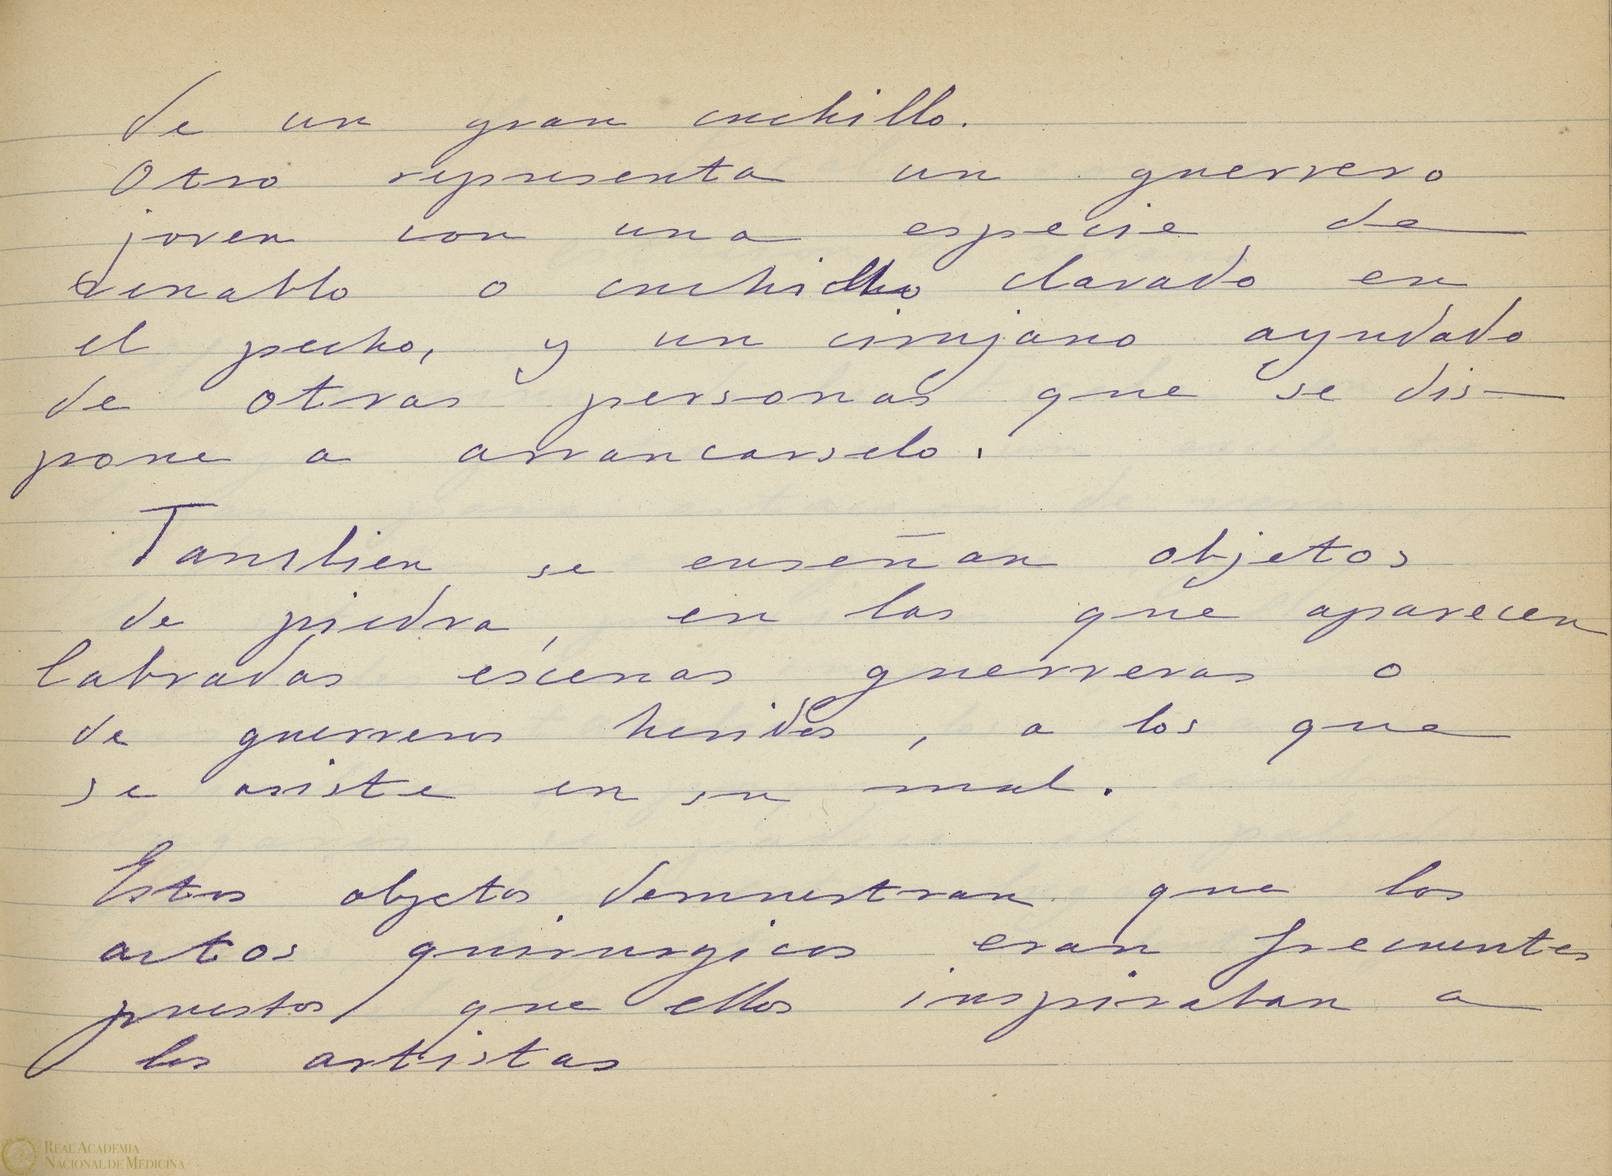 de un gran cuchillo.
Otro representa un guerrero
joven con una especie de
venablo o cuchillo clavado en
el pecho, y un cirujano ayudado
de otras personas que se dis-
pone a arrancarselo.
Tambien se enseñan objetos
de piedra, en las que aparecen
labradas escenas guerreras o
de guerreros heridos, a los que
se asiste en su mal.
Estos objetos demuestran que los
actos quirurgicos eran frecuentes
puestos que ellos inspiraban a
los artistas
REAL ACADEMIA
NACIONAL DE MEDICINA